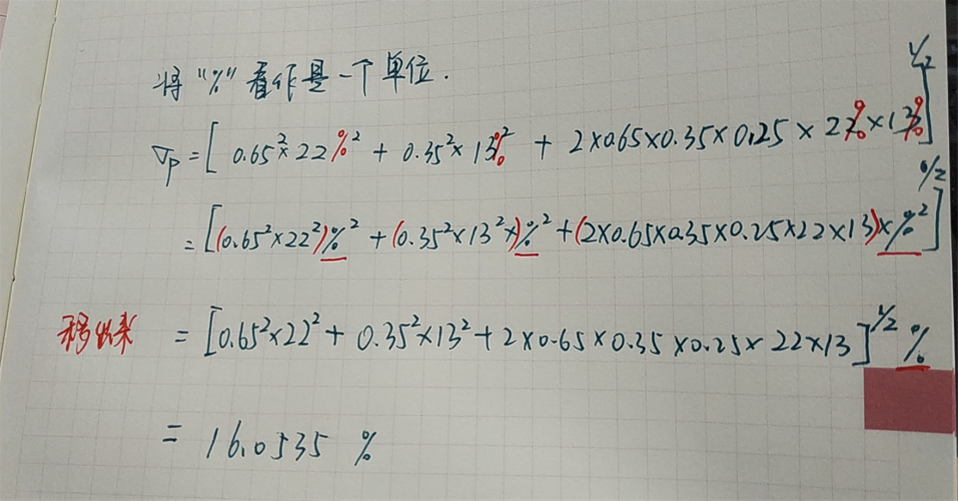 将“%”看作是一个单位.
σp = [0.65²×22%² + 0.35²×13%² + 2×0.65×0.35×0.25×22%×13%]^1/2
= [(0.65²×22²)%² + (0.35²×13²×)%² + (2×0.65×0.35×0.25×22×13)×%²]^1/2
移出来 = [0.65²×22² + 0.35²×13² + 2×0.65×0.35×0.25×22×13]^1/2 %
= 16.0535 %